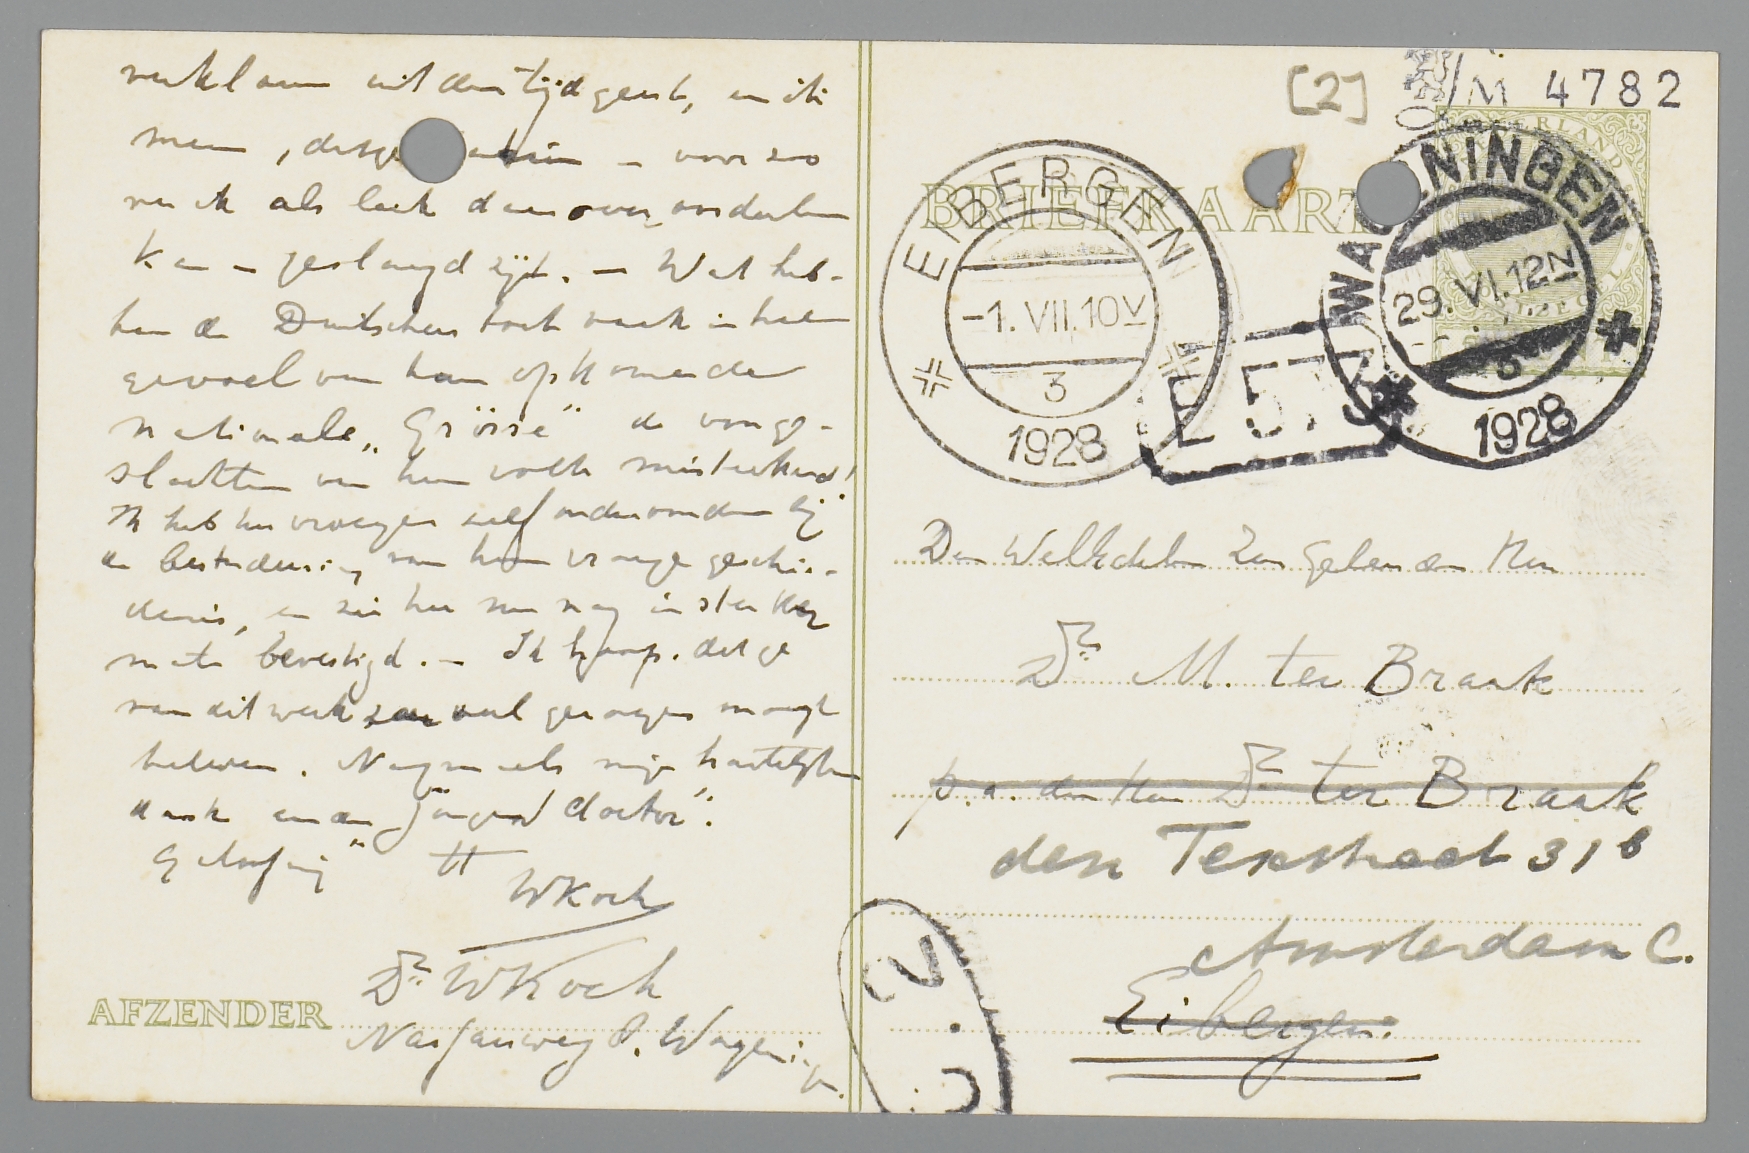 verklaren uit den tijdgeest, en ik
meen, dat ge daarin – voor zoo
ver ik als leek daarover oordeelen
kan – geslaagd zijt. – Wat heb-
ben de Duitschers toch vaak in hun
gevoel van hun opkomende
nationale „Grösse" de
van hun volk
Ik heb het vroeger zelf ondervonden bij
de bestudeering van hun vroege geschie-
denis, en zie het nu nog in sterker
mate bevestigd. – Ik hoop, dat ge
van dit werk veel genoegen moogt
beleven. Nogmaals mijn hartelijken
dank en aan „jongen doctor".
tt
WKoch
AFZENDER
Dr. WKoch
Nassauweg 8. Wageningen.
[2]
M 4782
BRIEFKAART
NEDERLAND
EIBERGEN
-1.VII.10V
3
1928
WAGENINGEN
29.VI.12N
1928
E 573
Den WelEdelen Zeer Geleerden Heer
Dr. M. ter Braak
p.a. den Heer Dr. ter Braak
den Texstraat 31 b
Amsterdam C.
Eibergen.